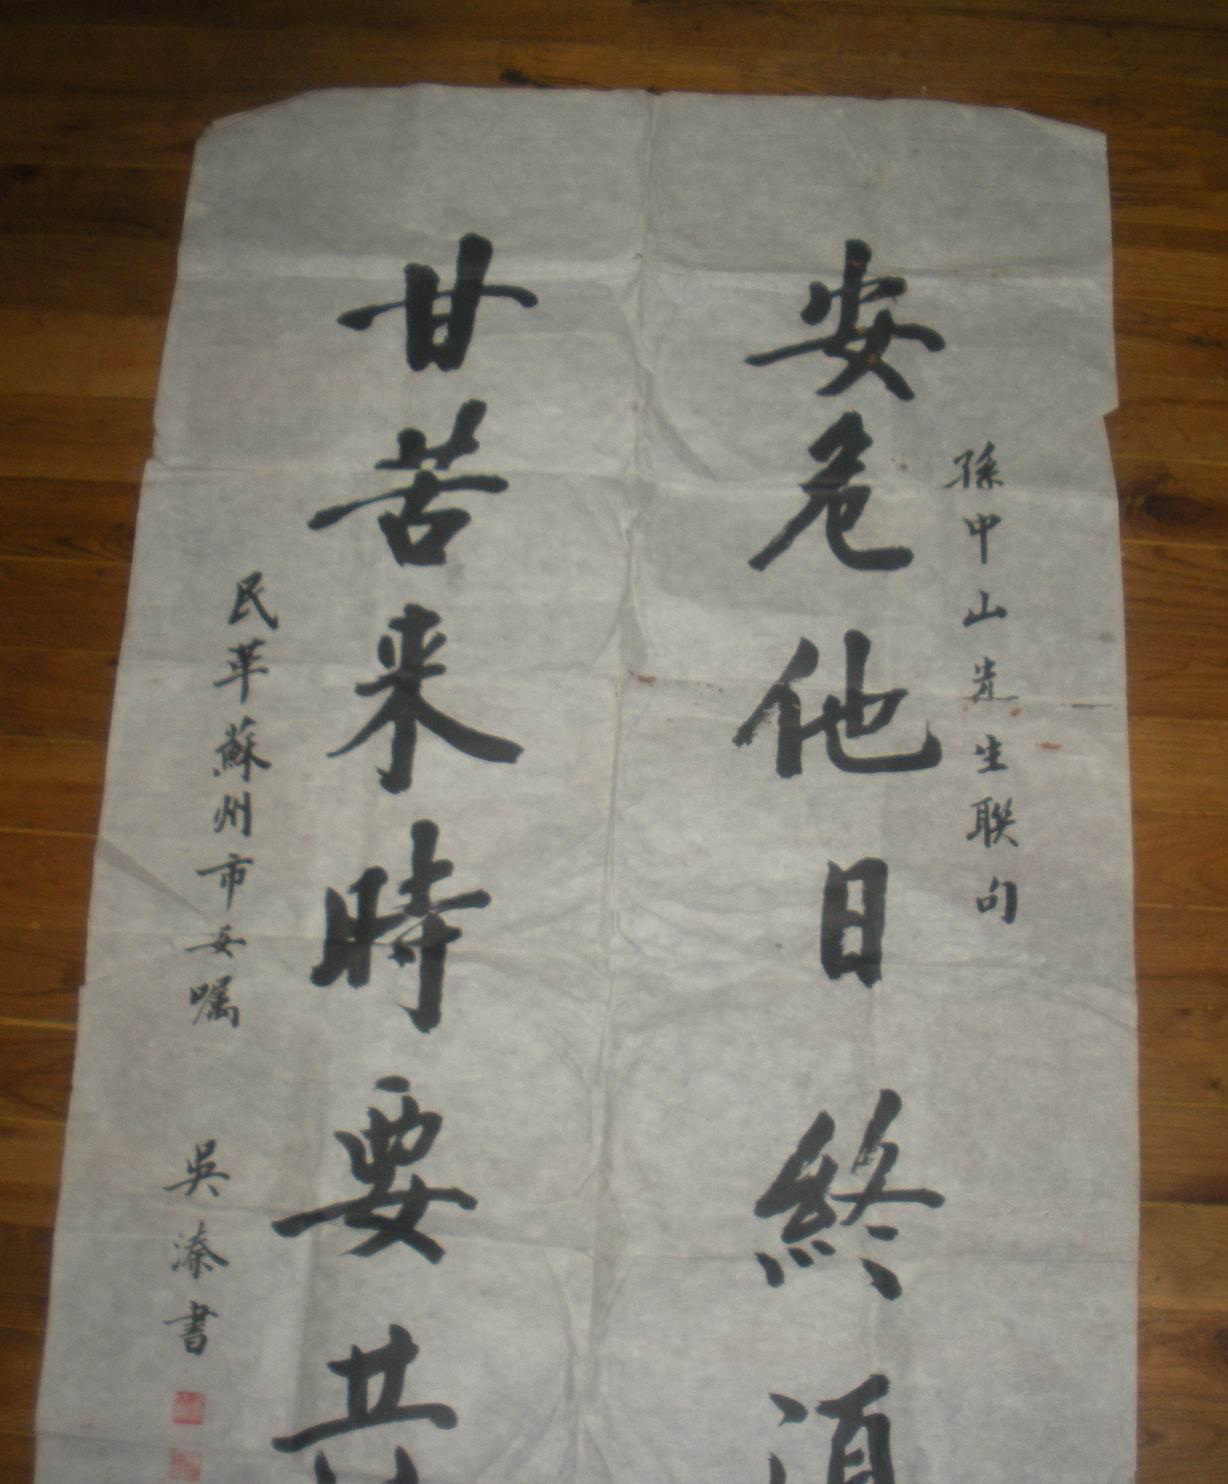 孫中山先生聯句
安危他日終須
甘苦来時要共
民革蘇州市委囑
吳溱書